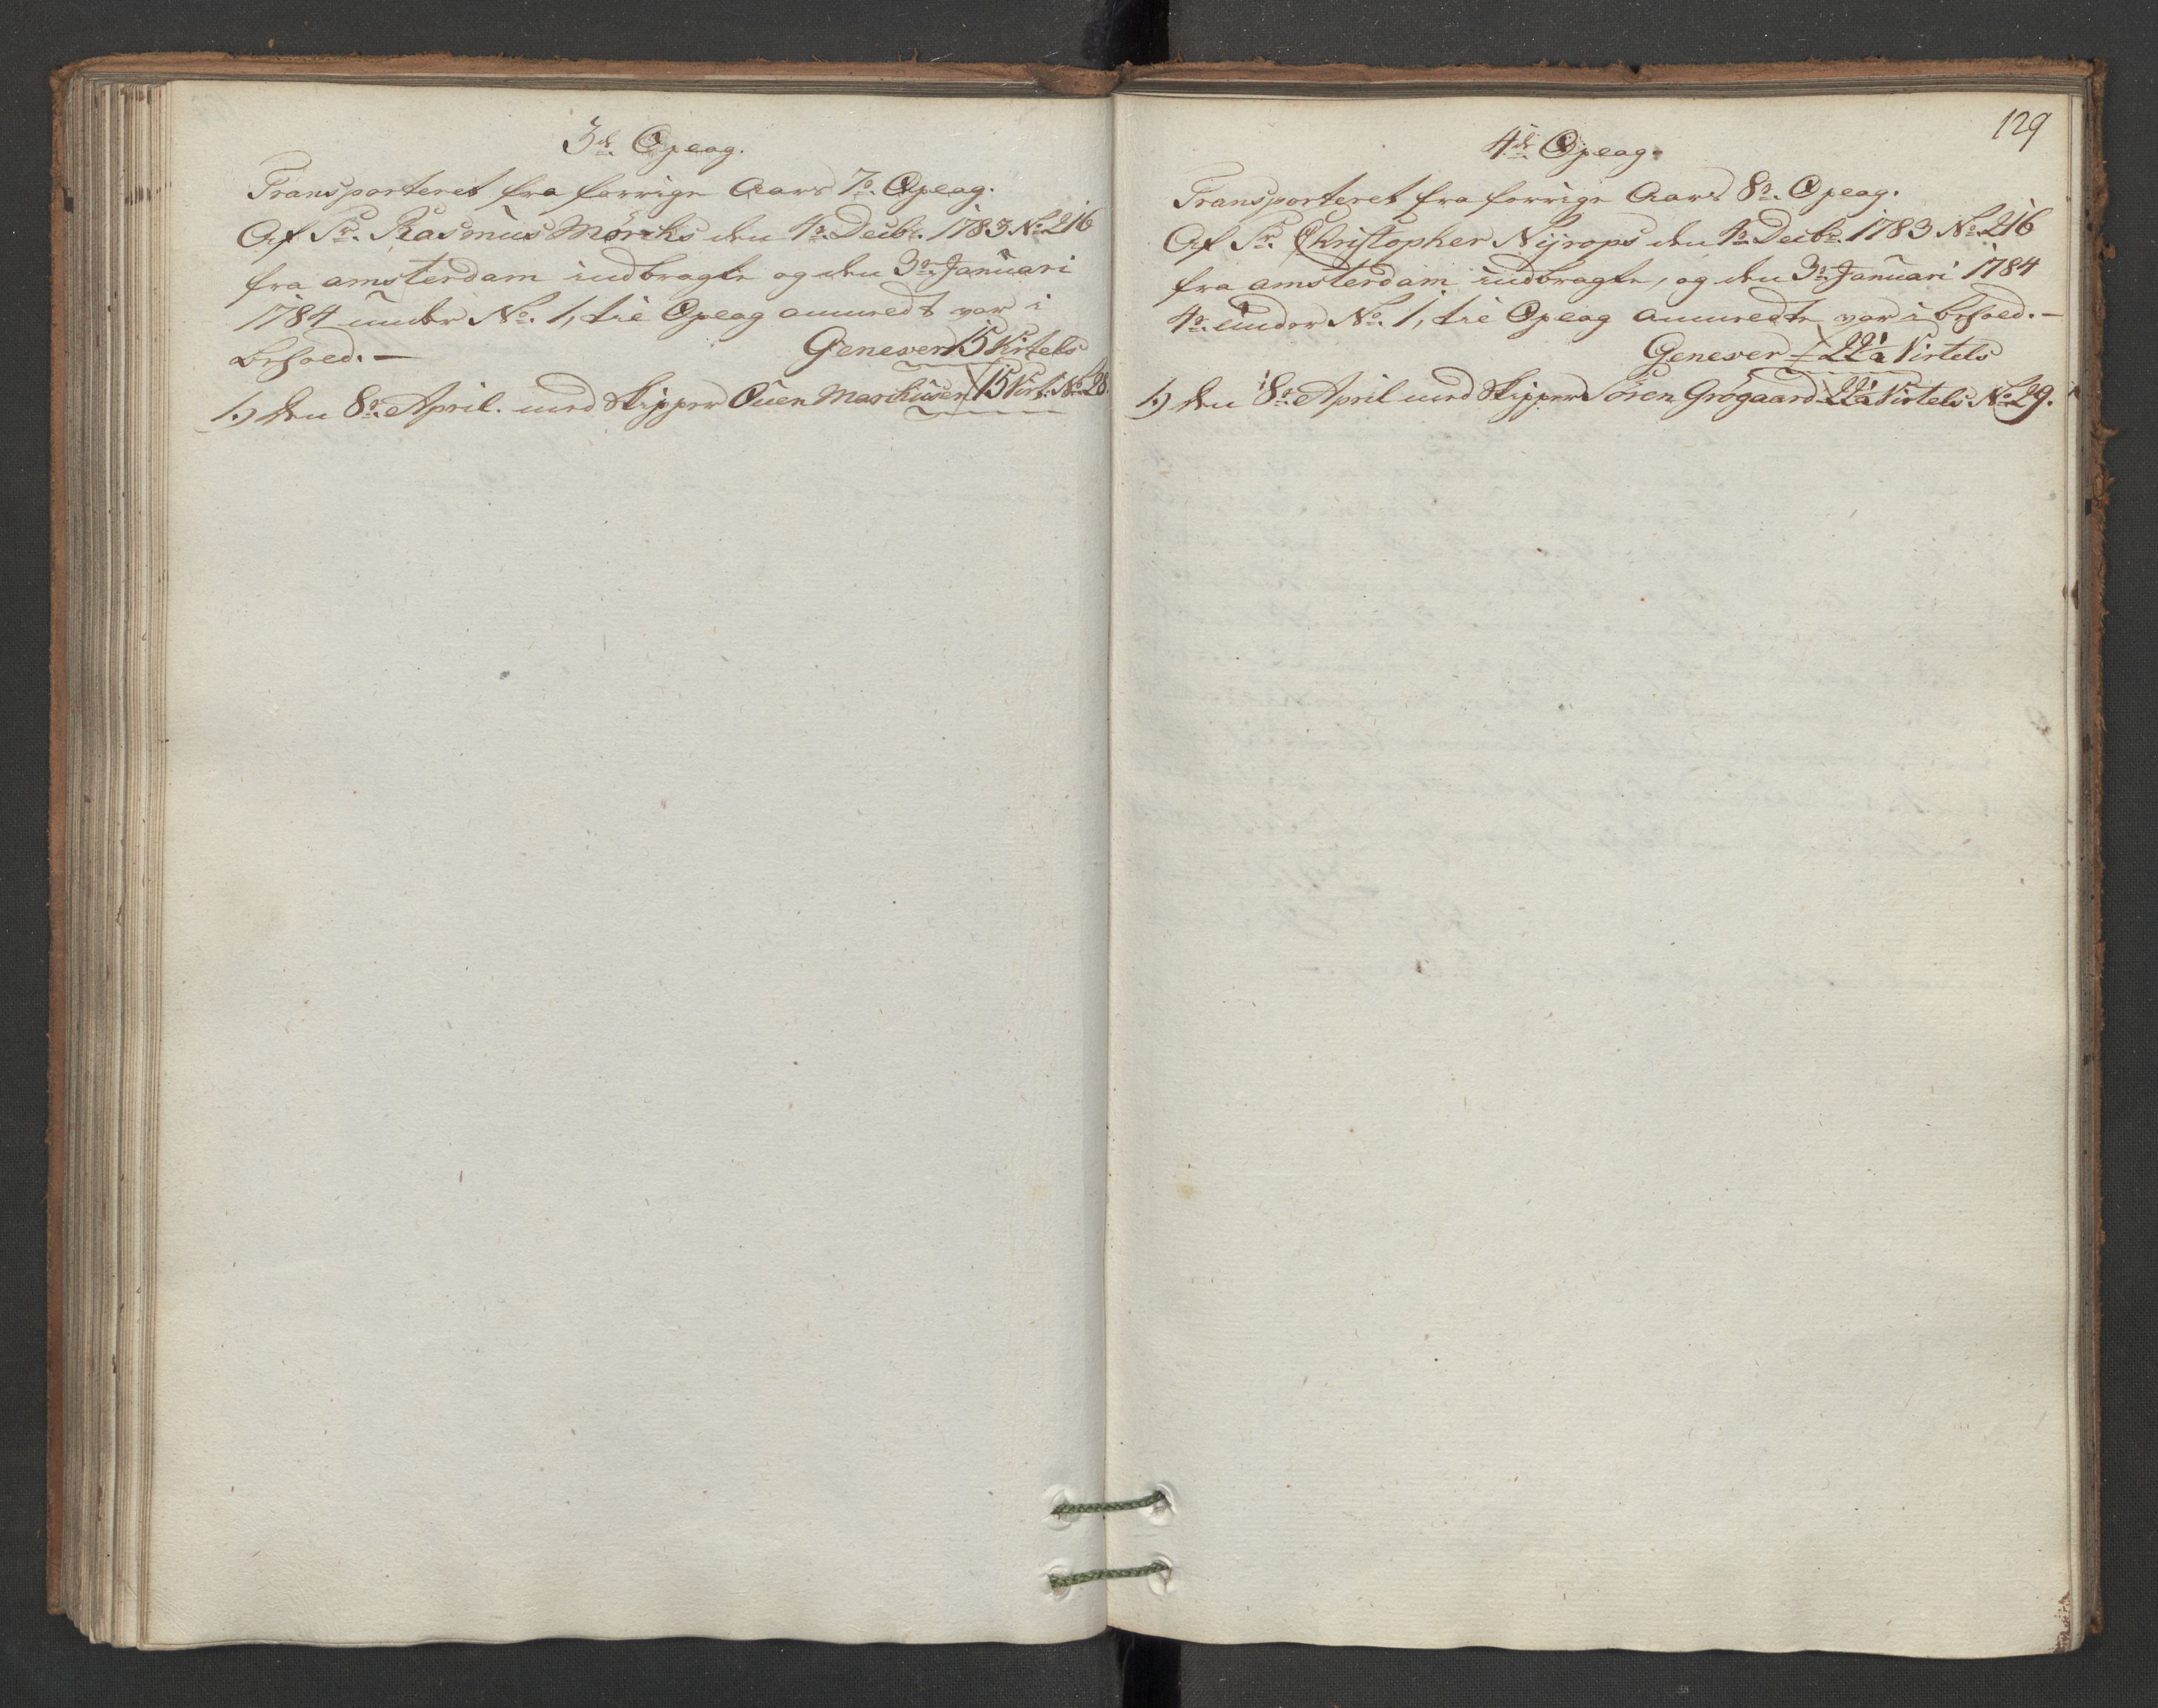 3de. Oplag.
Transporteret fra forrige Aars 7de. Oplag.
Af Sr. Rasmus Mörchs den 1te. Decbr. 1783 No. 216
fra amsterdam indbragte og den 3de. Januari
1784 under No. 1, til Oplag anmeldt var i
behold. —
Genever 15 Virtels
1.) den 8de. April. med Skipper Ouen Marcussen 15 Virt: No. 28.
129
4de. Oplag.
Transporteret fra forrige Aars 8de. Oplag.
Af Sr. Christopher Nÿrops den 1te. Decbr. 1783 No. 216
fra amsterdam indbragte, og den 3de. Januari 1784
under No. 1, til Oplag anmeldte var i behold. —
Genever 22½ Virtels
1.) den 8de. April med Skipper Sören Grögaard 22½ Virtels No. 29.